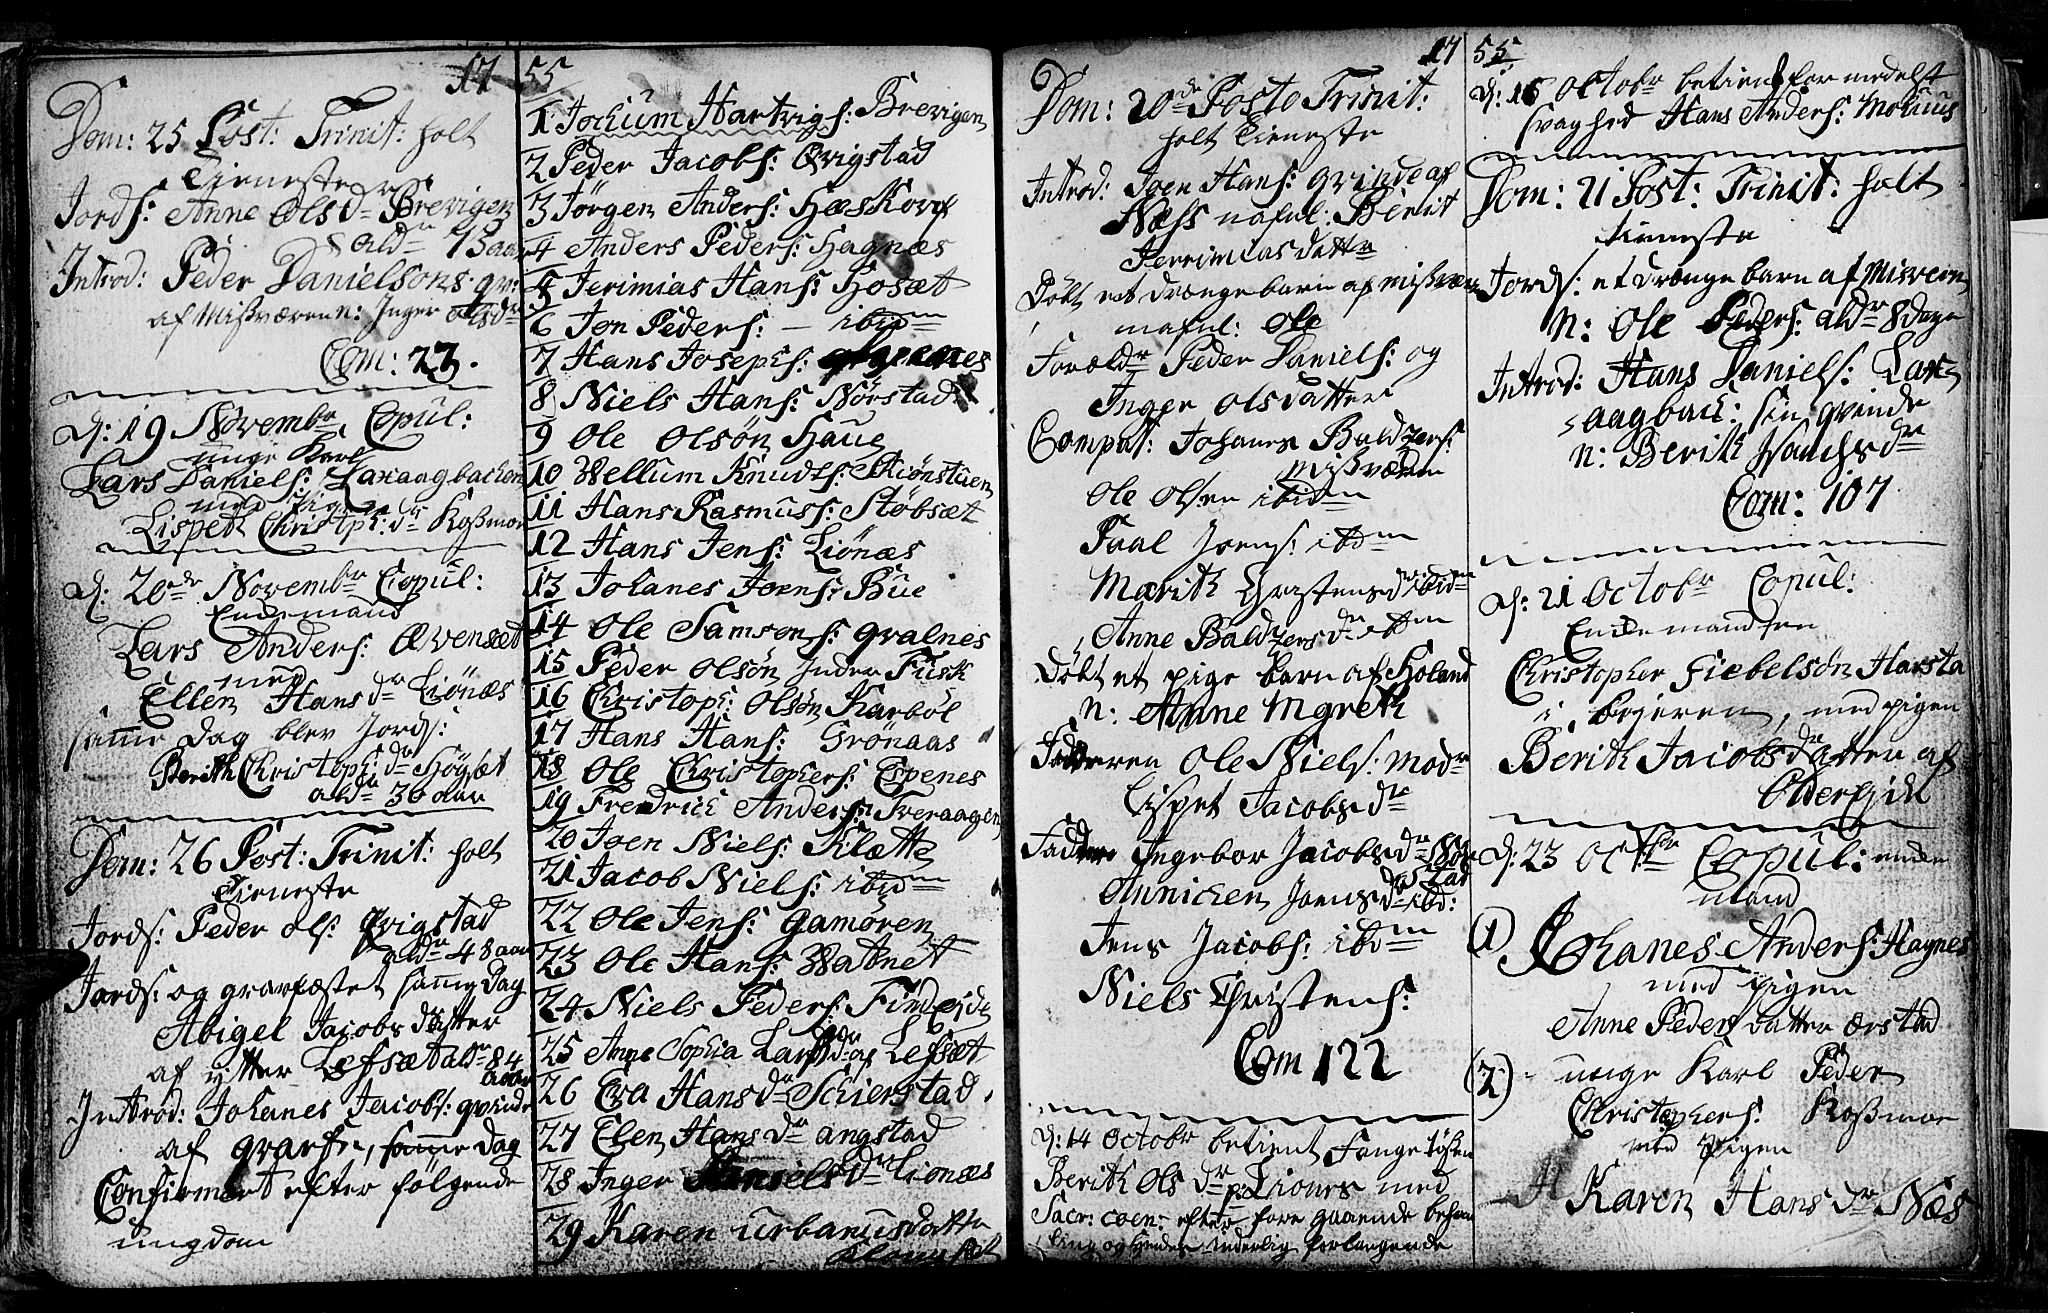 17 55
Dom: 25 Post: Trinit: holt
Tieneste
Jords: Anne Olsdr Brevigen
aldr 13 aar
Introd: Peder Danielsons qv:
af Misværen n: Inger Olsdr
Com: 23.
d: 19 Novembr Copul:
unge Karl
Lars Daniels: Laxaagbacken
med Pig
Lispeth Christoph: dr Koßmoe
d: 20de Novembr Copul:
Enckemand
Lars Anders: Evensæt
med
Ellen Hansdr Liønæs
samme Dag blev Jords:
Berith Christoph: dr Høgset
aldr 30 aar
Dom: 26 Post: Trinit: holt
Tieneste
Jords: Peder Ols: Qvigstad
aldr 48 aar
Jords: og gravfæstet samme Dag
Abigel Jacobsdatter
af ytter Lefsæt aldr 84
aar
Introd: Johanes Jacobs: qvinde
af Grarfie, samme Dag
Confirmert efter følgende
ungdom
1 Jochum Hartvigs: Brevigen
2 Peder Jacobs: Qvigstad
3 Jørgen Anders: Hæskorf
4 Anders Peders: Hagnæs
5 Jerimias Hans: Hosæt
6 Jon Peders: – ibidm
7 Hans Josephs:
8 Niels Hans: Nørstad
9 Ole Olsøn Haue
10 Wellum Knuds: Kiønstuen
11 Hans Rasmus: Støbsæt
12 Hans Jens: Liønæs
13 Johanes Joens: Bue
14 Ole Samsons: Gralnes
15 Peder Olsøn Inder Fusk
16 Christoph: Olsøn Karbøl
17 Hans Hans: Grønaas
18 Ole Christophers: Espenes
19 Fredrich Anders: Tveraagen
20 Joen Niels: Klætte
21 Jacob Niels: ibidm
22 Ole Jens: Gamoren
23 Ole Hans: Watnet
24 Niels Peders:
25 Anne Sophia Larsdr af Lefsæt
26 Eva Hansdr Schierstad
27 Elen Hansdr Angstad
28 Inger Danielsdr Lionæs
29 Karen Urbanusdatter
17 55
Dom: 20de Post Trinit:
holt Tieneste
Introd: Joen Hans: qvinde af
Næss nafnl: Berit
Jerrimias datter
Døbt et drænge barn af Misvær
nafnl: Ole
Foreldr Peder Daniels: og
Inger Olsdatter
Compat: Johanes Baldzers:
Misværen
Ole Olsen ibidm
Paal Joens: ibidm
Marith Christensdr ibidm
Anne Baldzersdr ibidm
Døbt et pige barn af Holand
N: Anne Mgreth
Fadderen Ole Niels: Modr
Lispet Jacobsdr
Fadder Ingebor Jacobsdr Nør
stad
Annichen Joensdr ibd:
Jens Jacobs: ibidm
Niels Christens:
Com 122
d: 14 Octobr betient
Berith Olsdr Liones med
Sacr: coen: efter fore gaaende
og hendes inderlig forlangende
d: 16 Octobr betient for medelst
svaghed Hans Anders: Molius
Dom: 21 Post: Trinit: holt
tieneste
Jords: et drænge barn af Misvern
N: Ole Peders: aldr 8 dage
Introd: Hans Daniels: Lax
aagback: sin qvinde
n: Berith Isachsdr
Com: 107
d: 21 Octobr Copul:
Enckemanden
Christopher Fiebelsøn Harsta
i Bejeren, med pigen
Berith Jacobsdatter af
Oldereidet
d: 23 Octbr Copul: encke
mand
1) Johanes Anders: Hagnes
med pigen
Anne Pedersdatter Ærstad
2) unge Karl Peder
Christophers: Koßmoe
med Pigen
Karen Hansdr Næs